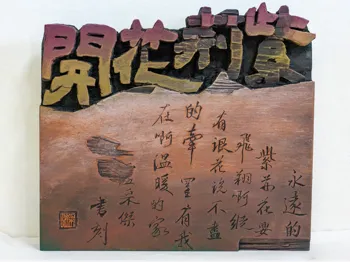 紫荊花開
永遠的
紫荊在
飛翔啊縱
有浪花說不盡
的牽罣有我
在啊溫暖的家
傑
書刻